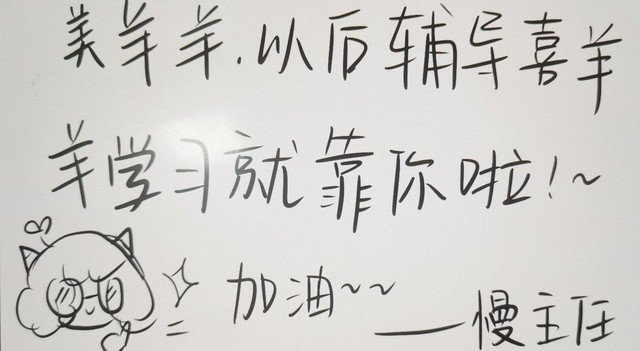 美羊羊.以后辅导喜羊
羊学习就靠你啦!~
加油~~
——慢主任